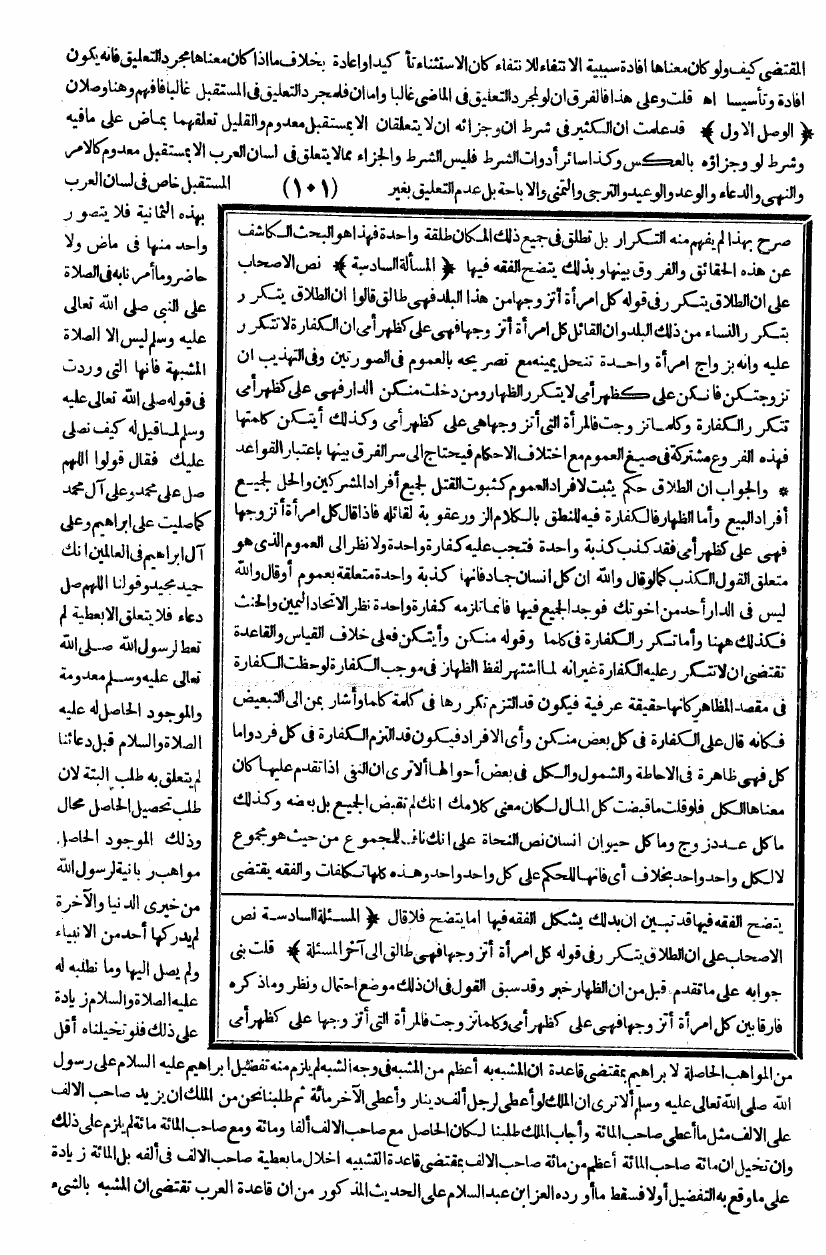 المقتضى كيف ولو كان معناها افادة سببية الانتفاء للانتفاء كان الاستثناء تأ كيدا واعادة بخلاف ما اذا كان معناها مجرد التعليق فانه يكون
افادة وتأسيسا اه قلت وعلى هذا فالفرق ان لو لمجرد التعليق فى الماضى غالبا واما ان فلمجرد التعليق فى المستقبل غالبا فافهم وهنا وصلان
﴿ الوصل الاول ﴾ قد علمت ان الكثير فى شرط ان وجزائه ان لا يتعلقان الا بمستقبل معدوم والقليل تعلقهما بماض على مافيه
وشرط لو وجزاؤه بالعكس وكذا سائر أدوات الشرط فليس الشرط والجزاء مما لا يتعلق فى لسان العرب الا بمستقبل معدوم كالامر
والنهى والدعاء والوعد والوعيد والترجى والتمنى والاباحة بل عدم التعليق بغير (١٠١) المستقبل خاص فى لسان العرب
صرح بهذا لم يفهم منه التكرار بل تطلق فى جميع ذلك المكان طلقة واحدة فهذا هو البحث الكاشف
عن هذه الحقائق والفروق بينها وبذلك يتضح الفقه فيها ﴿ المسألة السادسة ﴾ نص الاصحاب
على ان الطلاق يتكرر فى قوله كل امرأة أتزوجها من هذا البلد فهى طالق قالوا ان الطلاق يتكرر
بتكرر النساء من ذلك البلد وان القائل كل امرأة أتزوجها فهى على كظهر أمى ان الكفارة لا تتكرر
عليه وانه بزواج امرأة واحدة تنحل يمينه مع تصريحه بالعموم فى الصورتين وفى التهذيب ان
تزوجتكن فانكن على كظهر أمى لا يتكرر الظهار ومن دخلت منكن الدار فهى على كظهر أمى
تتكرر الكفارة وكلما تزوجت فالمرأة التى أتزوجها هى على كظهر أمى وكذلك أيتكن كلمتها
فهذه الفروع مشتركة فى صيغ العموم مع اختلاف الاحكام فيحتاج الى سر الفرق بينها باعتبار القواعد
* والجواب ان الطلاق حكم يثبت لافراد العموم كثبوت القتل لجميع أفراد المشركين والحل لجميع
أفراد البيع وأما الظهار فالكفارة فيه للنطق بالكلام الزور عقوبة لقائله فاذا قال كل امرأة أتزوجها
فهى على كظهر أمى فقد كذب كذبة واحدة فتجب عليه كفارة واحدة ولا نظر الى العموم الذى هو
متعلق القول الكذب كما لو قال والله ان كل انسان جماد فانها كذبة واحدة متعلقة بعموم أو قال والله
ليس فى الدار أحد من اخوتك فوجد الجميع فيها فانما تلزمه كفارة واحدة نظرا لاتحاد اليمين والحنث
فكذلك ههنا وأما تكرر الكفارة فى كلما وقوله منكن وأيتكن فعلى خلاف القياس والقاعدة
تقتضى ان لا تتكرر عليه الكفارة غير انه لما اشتهر لفظ الظهار فى موجب الكفارة لوحظت الكفارة
فى مقصد المظاهر كانها حقيقة عرفية فيكون قد التزم تكررها فى كلمة كلما وأشار بمن الى التبعيض
فكانه قال على الكفارة فى كل بعض منكن وأى الافراد فيكون قد التزم الكفارة فى كل فرد واما
كل فهى ظاهرة فى الاحاطة والشمول والكل فى بعض أحوالها ألا ترى ان النفى اذا تقدم عليها كان
معناها الكل فلو قلت ما قبضت كل المال لكان معنى كلامك انك لم تقبض الجميع بل بعضه وكذلك
ما كل عدد زوج وما كل حيوان انسان نص النحاة على انك ناف للجموع من حيث هو مجموع
لا لكل واحد واحد بخلاف أى فانها للحكم على كل واحد واحد وهذه كلها تكلفات والفقه يقتضى
يتضح الفقه فيها قد تبين ان بذلك يشكل الفقه فيها اما يتضح فلا قال ﴿ المسئلة السادسة نص
الاصحاب على ان الطلاق يتكرر فى قوله كل امرأة أتزوجها فهى طالق الى آخر المسئلة ﴾ قلت بنى
جوابه على ما تقدم قبل من ان الظهار خبر وقد سبق القول فى ان ذلك موضع احتمال ونظر وما ذكره
فارقا بين كل امرأة أتزوجها فهى على كظهر أمى وكلما تزوجت فالمرأة التى أتزوجها على كظهر أمى
بهذه الثمانية فلا يتصور
واحد منها فى ماض ولا
حاضر وما أمرنا به فى الصلاة
على النبى صلى الله تعالى
عليه وسلم ليس الا الصلاة
المشبهة فانها التى وردت
فى قوله صلى الله تعالى عليه
وسلم لما قيل له كيف نصلى
عليك فقال قولوا اللهم
صل على محمد وعلى آل محمد
كما صليت على ابراهيم وعلى
آل ابراهيم فى العالمين انك
حميد مجيد وقولنا اللهم صل
دعاء فلا يتعلق الا بعطية لم
تعط لرسول الله صلى الله
تعالى عليه وسلم معدومة
والموجود الحاصل له عليه
الصلاة والسلام قبل دعائنا
لم يتعلق به طلب البتة لان
طلب تحصيل الحاصل محال
وذلك الموجود الحاصل
مواهب ربانية لرسول الله
من خيرى الدنيا والآخرة
لم يدركها أحد من الانبياء
ولم يصل اليها وما نطلبه له
عليه الصلاة والسلام زيادة
على ذلك فلو تخيلناه أقل
من المواهب الحاصلة لابراهيم بمقتضى قاعدة ان المشبه به أعظم من المشبه فى وجه الشبه لم يلزم منه تفضيل ابراهيم عليه السلام على رسول
الله صلى الله تعالى عليه وسلم ألا ترى ان الملك لو أعطى لرجل ألف دينار وأعطى الآخر مائة ثم طلبنا نحن من الملك ان يزيد صاحب الالف
على الالف مثل ما أعطى صاحب المائة وأجاب الملك طلبنا لكان الحاصل مع صاحب الالف ألفا ومائة ومع صاحب المائة مائة لم يلزم على ذلك
وان تخيل ان مائة صاحب المائة أعظم من مائة صاحب الالف بمقتضى قاعدة التشبيه اخلال ما بعطية صاحب الالف فى ألفه بل المائة زيادة
على ما وقع به التفضيل أولا فسقط ما أورده العز ابن عبد السلام على الحديث المذكور من ان قاعدة العرب تقتضى ان المشبه بالشىء